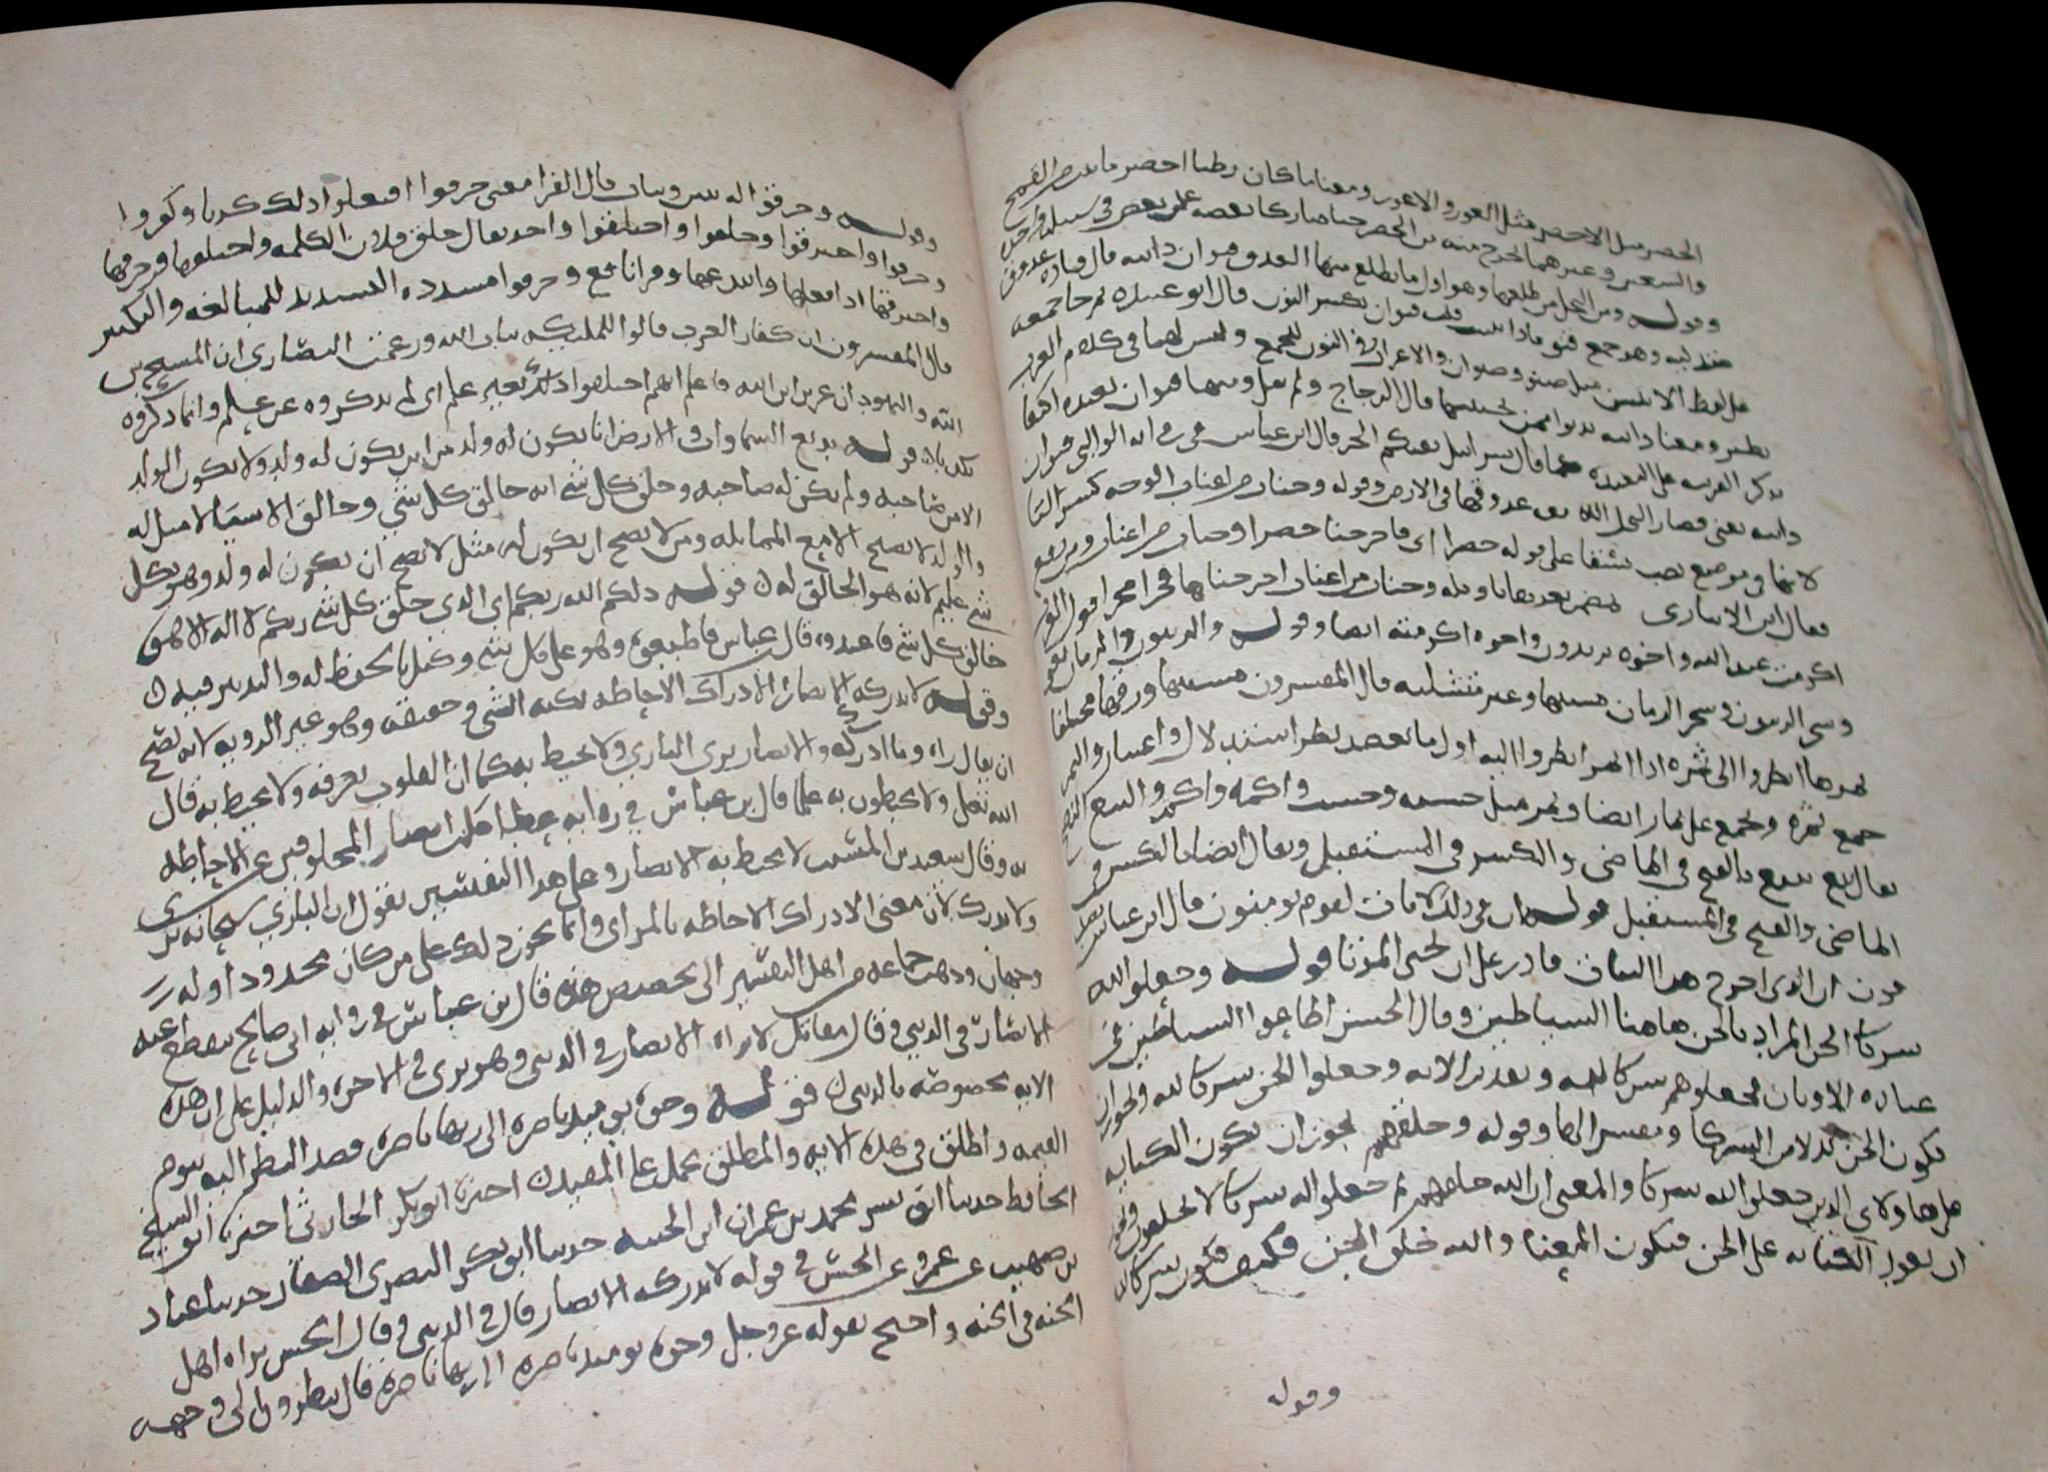 الخضر مثل الاخضر مثل العور والاعور ومعناه ما كان رطبا اخضر ما ينبت من القمح
والشعير وغيرهما نخرج منه من الخضر حبا متراكبا بعضه على بعض في سنبلة واحدة
وقوله ومن النخل من طلعها وهو اول ما يطلع منها القنو قنوان دانيه قال قتاده عذوق
متدليه وهو جمع قنو فاذا ثنيت قلت قنوان بكسر النون قال ابو عبيده ثم جا جمعه
على لفظ الاثنين مثل صنو وصنوان والاعراب في النون للجمع وليس لهما في كلام العرب
نظير ومعنا دانيه قال الزجاج ولم يقل ومنها قنوان بعيده اكتفا
بذكر القريبه عن البعيده كما قال سرابيل تقيكم الحر قال ابن عباس في روايه الوالبي قنوان
دانيه يعني قصار النخل عذوقها في الارض وقوله وجنات من اعناب الوجه كسر التا
لانها في موضع نصب نسقا على قوله خضرا اي فاخرجنا خضرا وجنات من اعناب
فقال ابن الانباري وجنات من اعناب اخرجناها
اكرمت عبد الله واخوه يريدون واخوه اكرمته ايضا وقوله والزيتون والرمان يعني
وشجر الزيتون وشجر الرمان مشتبها وغير متشابه قال المفسرون مشتبها ورقها مختلفا
ثمرها انظروا الى ثمره اذا اثمر انظروا اليه اول ما يعقد نظر استدلال واعتبار والثمر
جمع ثمره ويجمع على ثمار ايضا وثمر مثل خشبه وخشب واكمه واكم والينع النضج
يقال ينع يينع بالفتح في الماضي والكسر في المستقبل ويقال ايضا بالكسر في
الماضي والفتح في المستقبل قوله ان في ذلك لايات لقوم يومنون قال ابن عباس
ان الذي اخرج هذا النبات قادر على ان يحي الموتا قوله وجعلوا لله
شركا الجن المراد بالجن هاهنا الشياطين وقال الحسن اطاعوا الشياطين في
عباده الاوثان فجعلوهم شركا لله وتقدير الايه وجعلوا الجن شركا لله ويجوز ان
يكون الجن بدلا من الشركا وتفسيرا لها وقوله وخلقهم يجوز ان تكون الكنايه
على هاولاي الذين جعلوا لله شركا والمعنى ان الله خالقهم ثم جعلوا له شركا لا يخلقون ويجوز
ان تعود الكنايه على الجن فيكون المعنا والله خلق الجن فكيف يكون شركا له
وقوله
وقوله وخرقوا له بنين وبنات قال الفرا معنى خرقوا افتعلوا ذلك كذبا وكفروا
وخرقوا واخترقوا وخلقوا واختلقوا واحد يقال خلق فلان الكلمه واختلقها وخرقها
واخترقها اذا افتعلها وابتدعها وقرا نافع وخرقوا مشدده التشديد للمبالغه والتكثير
قال المفسرون ان كفار العرب قالوا الملايكه بنات الله وزعمت النصارى ان المسيح ابن
الله واليهود ان عزير ابن الله فاعلم انهم اختلقوا ذلك بغير علم اي لم يذكروه عن علم وانما ذكروه
تكذبا قوله بديع السماوات والارض انا يكون له ولد من اين يكون له ولد ولا يكون الولد
الا من صاحبه ولم يكن له صاحبه وخلق كل شي انه خالق كل شي وخالق الاشيا لا مثل له
والولد لا يصح الا مع المماثله ومن لا يصح ان يكون له مثل لا يصح ان يكون له ولد وهو بكل
شي عليم لانه هو الخالق له قوله ذلكم الله ربكم اي الذي خلق كل شي ربكم لا اله الا هو
خالق كل شي فاعبدوه قال عباس فاطيعوه وهو على كل شي وكيل بالحفظ له والتدبير فيه
وقوله لا تدركه الابصار الادراك الاحاطه بكنه الشي وحقيقته وهو غير الرويه لانه يصح
ان يقال راه وما ادركه والابصار يرى الباري ولا تحيط به كما ان القلوب تعرفه ولا تحيط به قال
الله تعالى ولا يحيطون به علما قال بن عباس في روايه عطا كلت ابصار المخلوقين عن الاحاطه
به وقال سعيد بن المسيب لا تحيط به الابصار وعلى هذا التفسير نقول ان الباري سبحانه يرى
ولا يدرك لان معنى الادراك الاحاطه بالمراى وانما يجوز ذلك على من كان محدودا وله
وجهات وذهب جماعه من اهل التفسير الى تخصيص هذه قال بن عباس في روايه ابي صالح ينقطع عنه
الابصار في الدني وقال مقاتل لا يراه الابصار في الدنى وهو يرى في الاخره والدليل على ان هذه
الايه مخصوصه بالدني قوله وجوه يوميذ ناضره الى ربها ناظره فقيد النظر اليه بيوم
القيمه واطلق في هذه الايه والمطلق يحمل على المقيد اخبرنا ابو بكر الحارثي اخبرنا ابو الشيخ
الحافظ حدثنا محمد بن عمران ابن الجنيد حدثنا ابو بكر البصري الصفار حدثنا عباد
بن صهيب عن عمرو عن الحسن في قوله لا تدركه الابصار قال في الدنى وقال الحسن يراه اهل
الجنه في الجنه واحتج بقوله عز وجل وجوه يوميذ ناضره الى ربها ناظره قال ينظرون الى وجهه